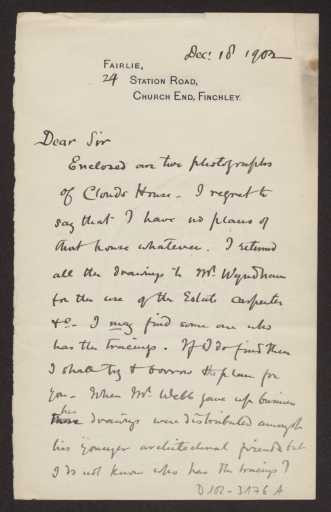 Dec. 18 1902
FAIRLIE,
24 STATION ROAD,
CHURCH END, FINCHLEY.
Dear Sir
Enclosed are two photographs
of Clouds House. I regret to
say that I have no plans of
that house whatever. I returned
all the drawings to Mr. Wyndham
for the use of the Estate carpenter
&c. I may find some one who
has the tracings. If I do find them
I shall try & borrow the plan for
you. When Mr. Webb gave up business
his drawings were distributed amongst
his younger architectural friends but
I do not know who has the tracings?
D 102-3176 A